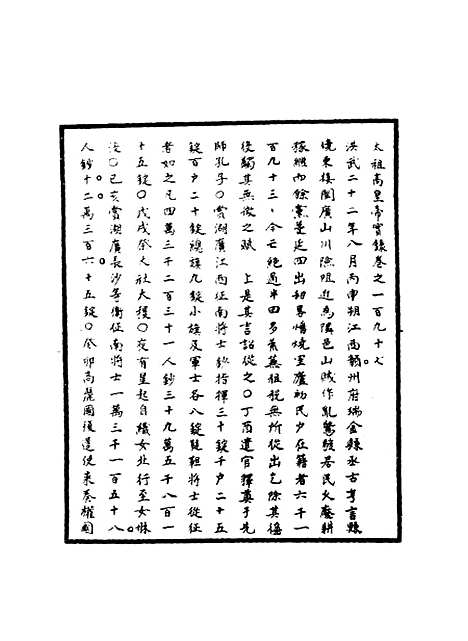 太祖高皇帝實錄卷之一百九十七
洪武二十二年八月丙申朔江西贛州府瑞金縣丞古亨言縣
境東接閩廣山川險阻近爲隣邑山賊作亂驚駭居民火廢耕
稼繼而餘黨蔓延四出刼畧燔燒室廬初民户在籍者六千一
百九十三今亡絕過半田多荒蕪租稅無所從出乞除其徭
役蠲其無徵之賦 上是其言詔從之○丁酉遣官釋奠于先
師孔子○賞湖廣江西征南將士鈔指揮三十錠千户二十五
錠百户二十錠總旗九錠小旗及軍士各八錠韃靼將士從征
者如之凡四萬三千二百三十一人鈔三十九萬五千八百一
十五錠○戊戌祭大社大稷○夜有星起自織女北行至女牀
没○己亥賞湖廣長沙等衛征南將士一萬三千一百五十八
人鈔十二萬三百六十五錠○癸卯高麗國復遣使來奏權國